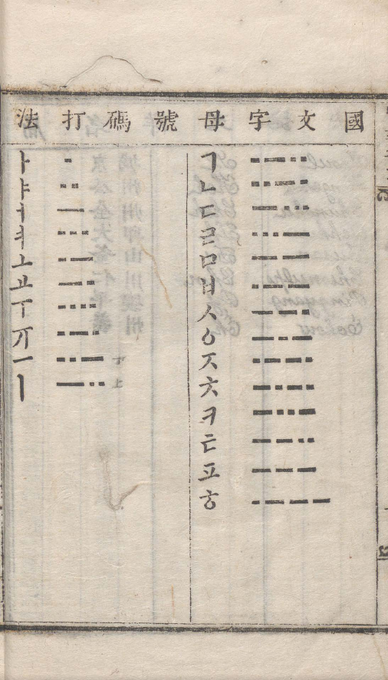 國文字母號碼打法
ㄱ
ㄴ
ㄷ
ㄹ
ㅁ
ㅂ
ㅅ
ㅇ
ㅈ
ㅊ
ㅋ
ㅌ
ㅍ
ㅎ
ㅏ
ㅑ
ㅓ
ㅕ
ㅗ
ㅛ
ㅜ
ㅠ
ㅡ
ㅣ